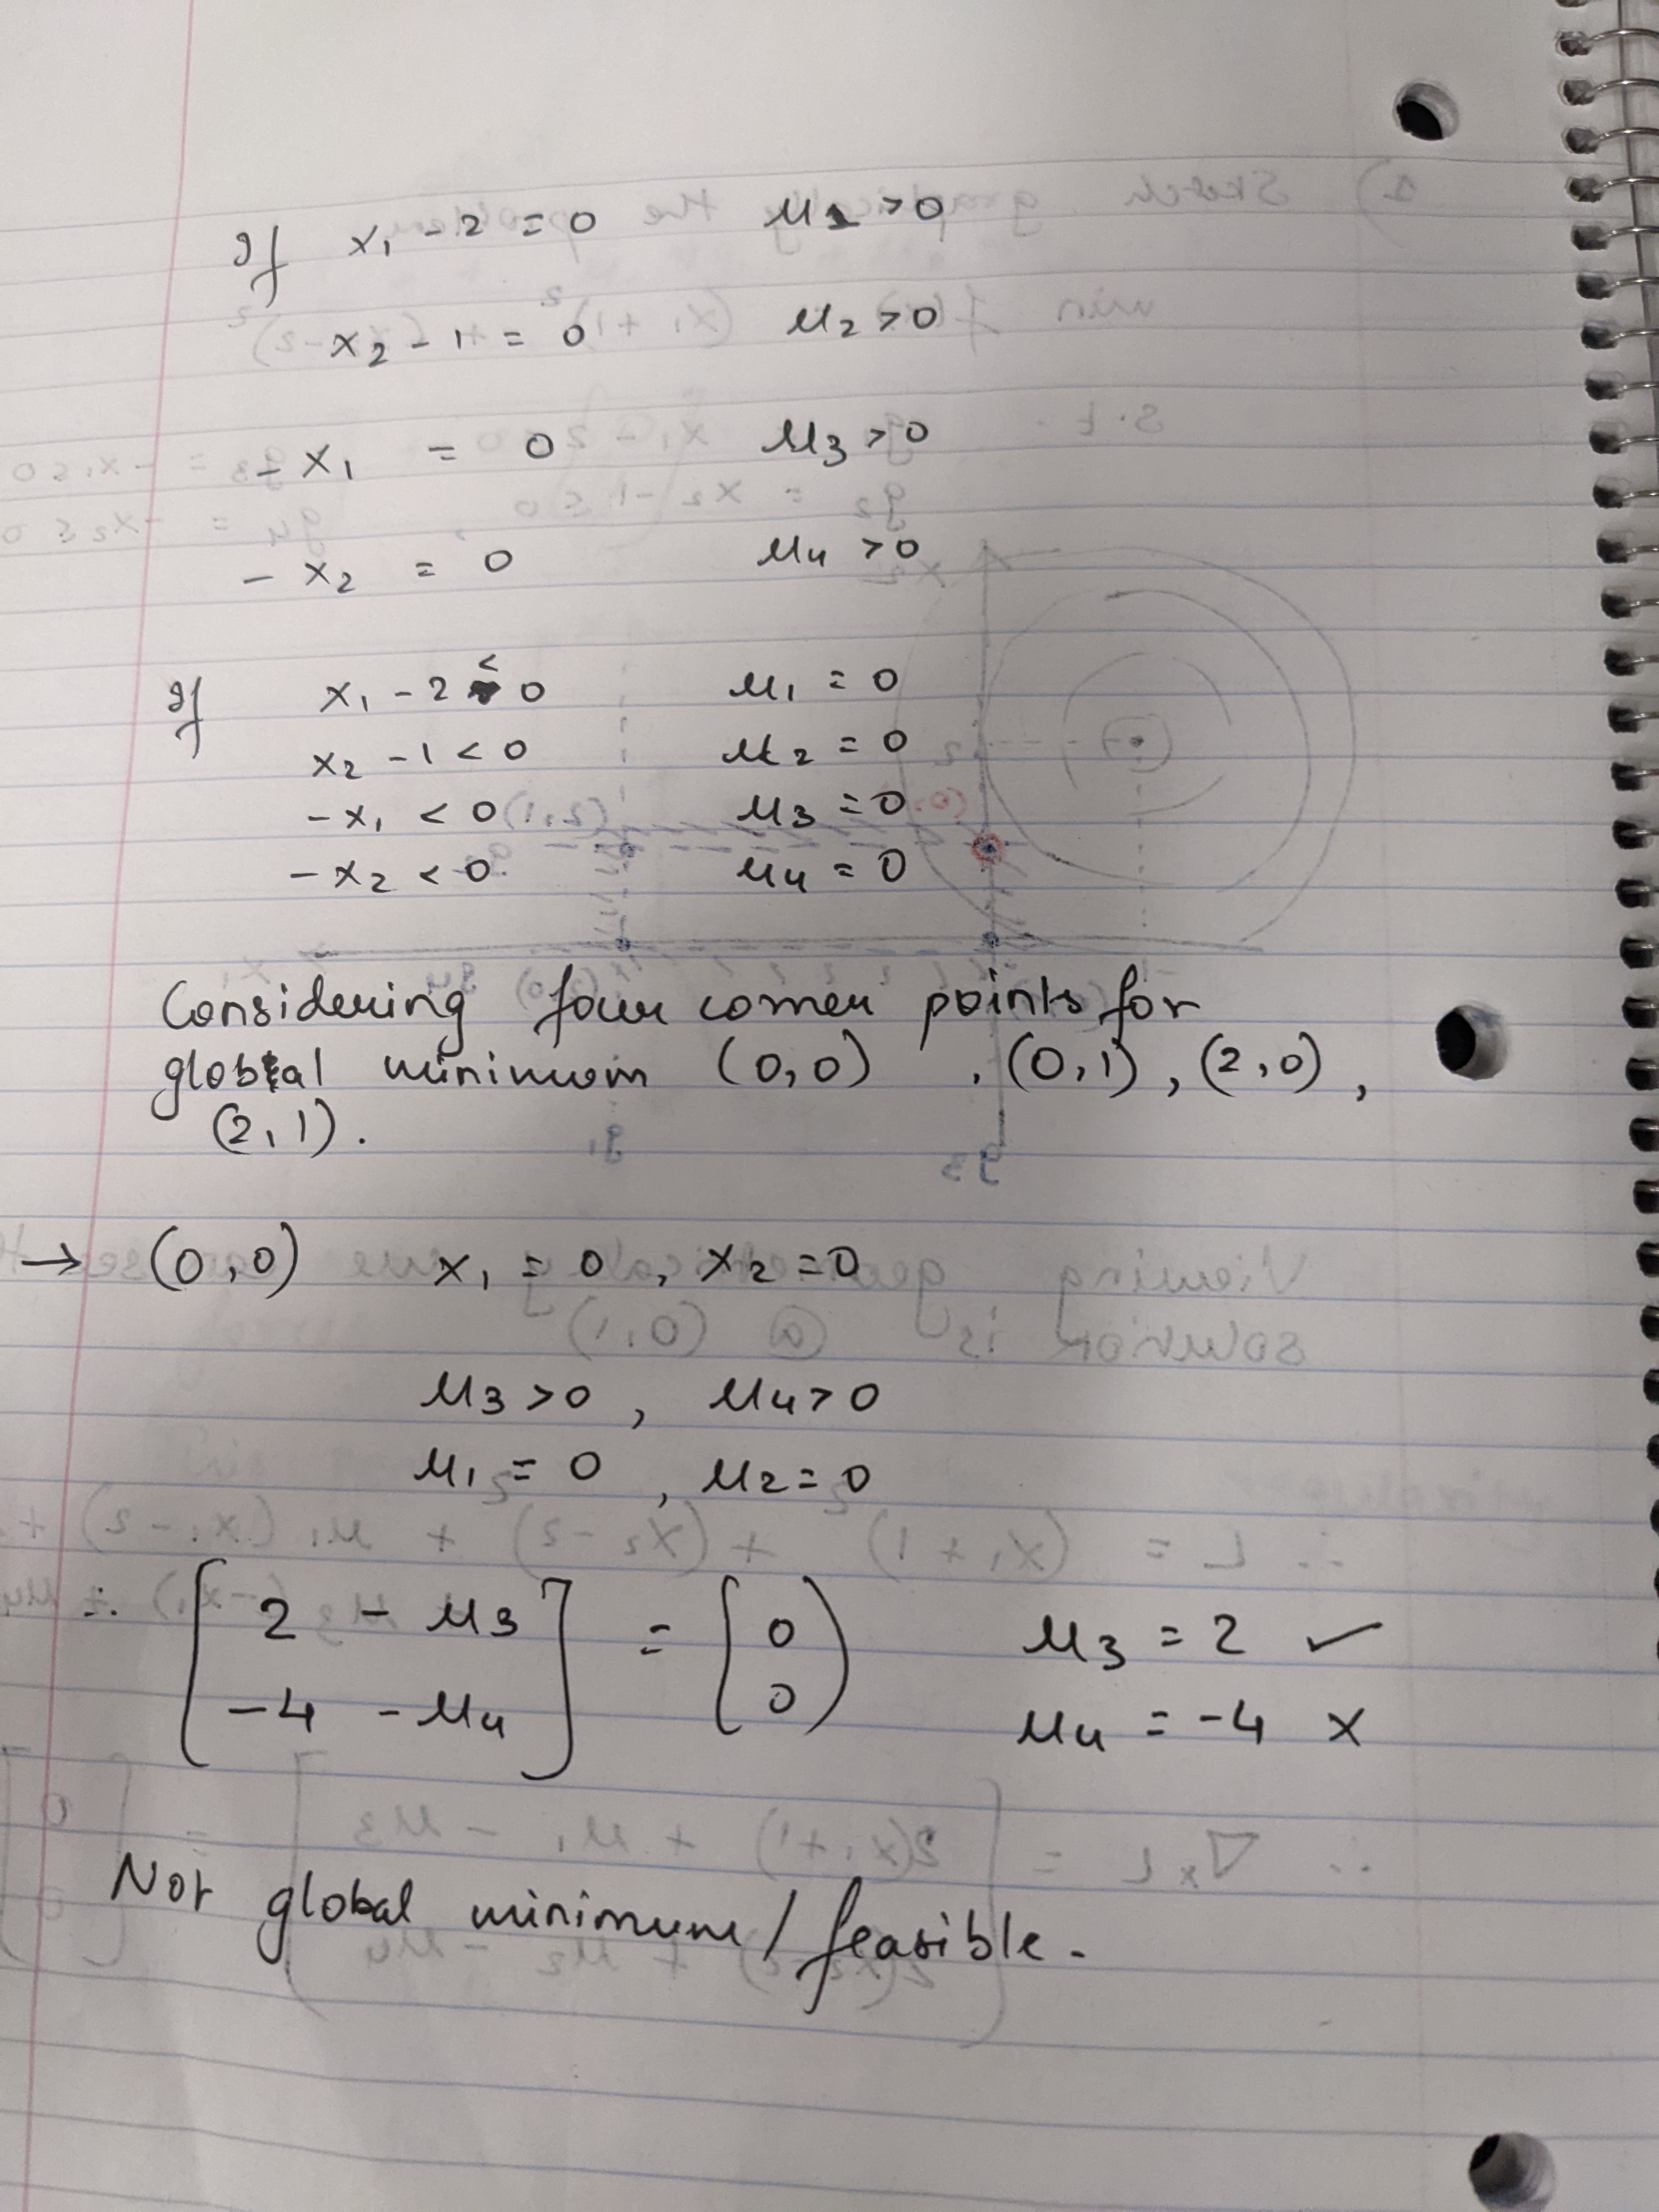 If x₁ - 2 = 0 μ₁ > 0
x₂ - 1 = 0 μ₂ > 0
- x₁ = 0 μ₃ > 0
- x₂ = 0 μ₄ > 0
If x₁ - 2 < 0 μ₁ = 0
x₂ - 1 < 0 μ₂ = 0
- x₁ < 0 μ₃ = 0
- x₂ < 0 μ₄ = 0
Considering four corner points for
global minimum (0,0) , (0,1), (2,0),
(2,1).
→ (0,0) x₁ = 0 , x₂ = 0
μ₃ > 0 , μ₄ > 0
μ₁ = 0 , μ₂ = 0
∴ [2 - μ₃] = [0] μ₃ = 2 ✓
[-4 - μ₄] [0] μ₄ = -4 x
Not global minimum / feasible.